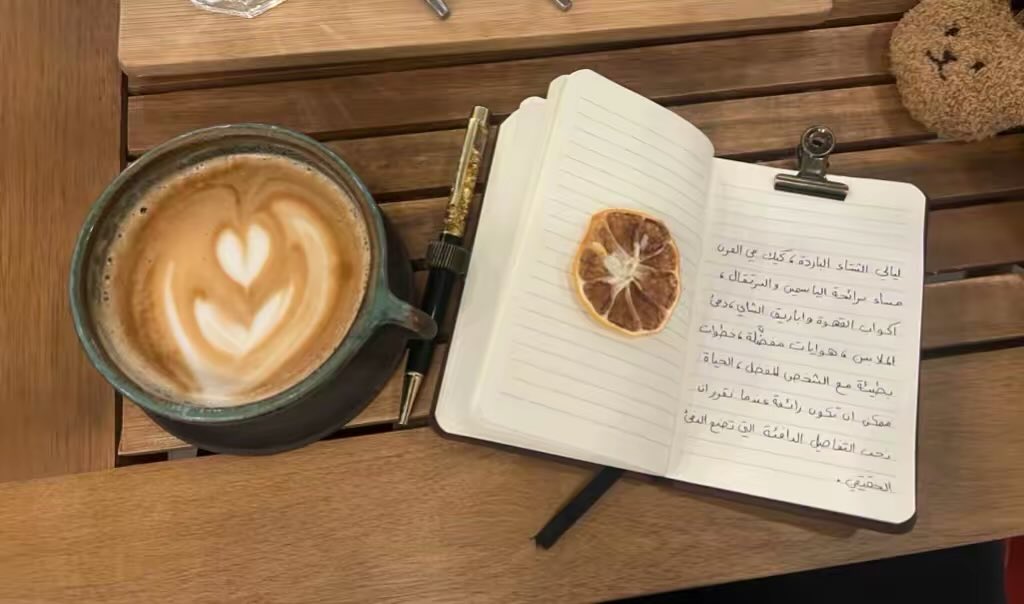 ليالي الشتاء الباردة، كيك في الفرن
مساء برائحة الياسمين والبرتقال،
أكواب القهوة واباريق الشاي، دفئ
الملابس، هوايات مفضّلة، خطوات
بطيئة مع الشخص المفضل، الحياة
ممكن ان تكون رائعة عندما نقرر ان
نحب التفاصيل الدافئة التي تصنع الدفئ
الحقيقي.